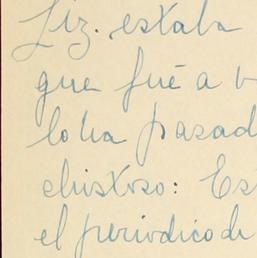 Liz. estaba
que fué a v
lo ha pasad
chistoso: Es
el periodico de